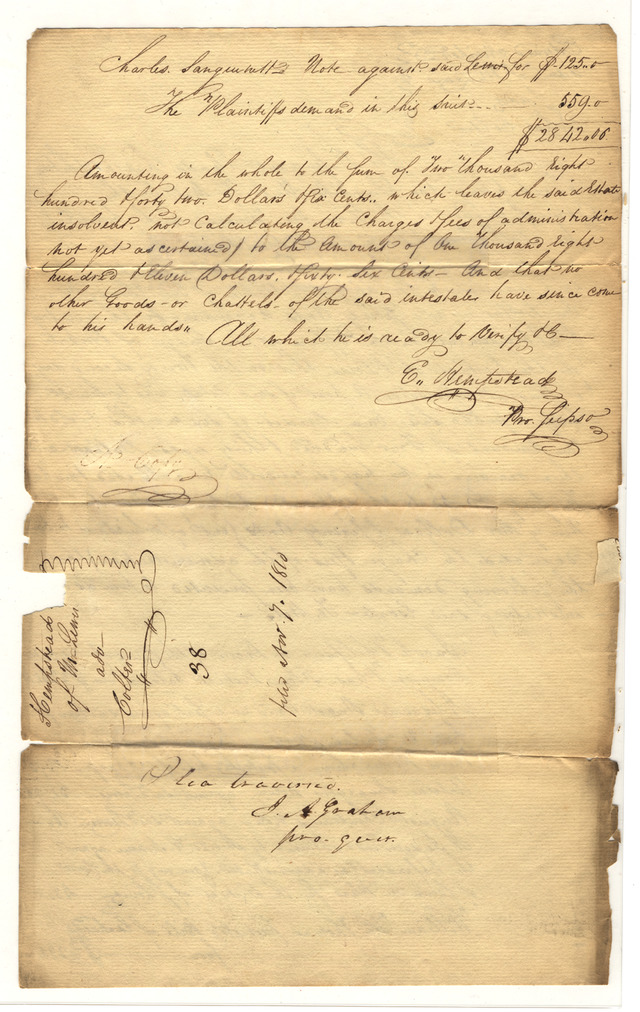 Charles Sanguinett's Note against said Lewis for $125.0
The Plaintiffs demand in this suit 559.0
$2842.06
Amounting in the whole to the sum of Two Thousand Eight
hundred & forty two Dollars & six Cents, which leaves the said Estate
insolvent, not Calculating the Charges & fees of administration
not yet ascertained) to the Amount of One Thousand Eight
hundred & Eleven Dollars, & sixty Six Cents – And that no
other Goods or Chattels of the said intestates have since come
to his hands,,
All which he is ready to Verify &c —
E,, Hempstead
Pro. Seipso
A Copy
Hempstead
of M. Lewis
ads
Colter
38
filed Nov 7. 1810
Plea traversed.
J. A. Graham
pro. quer.